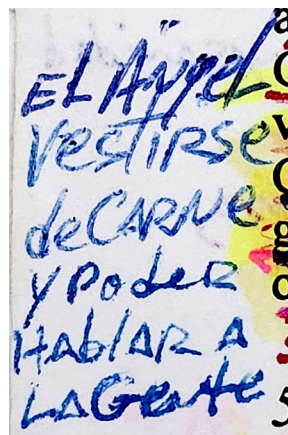 EL Ángel
vestirse
de CARNE
y Poder
HAblAR A
LA Gente